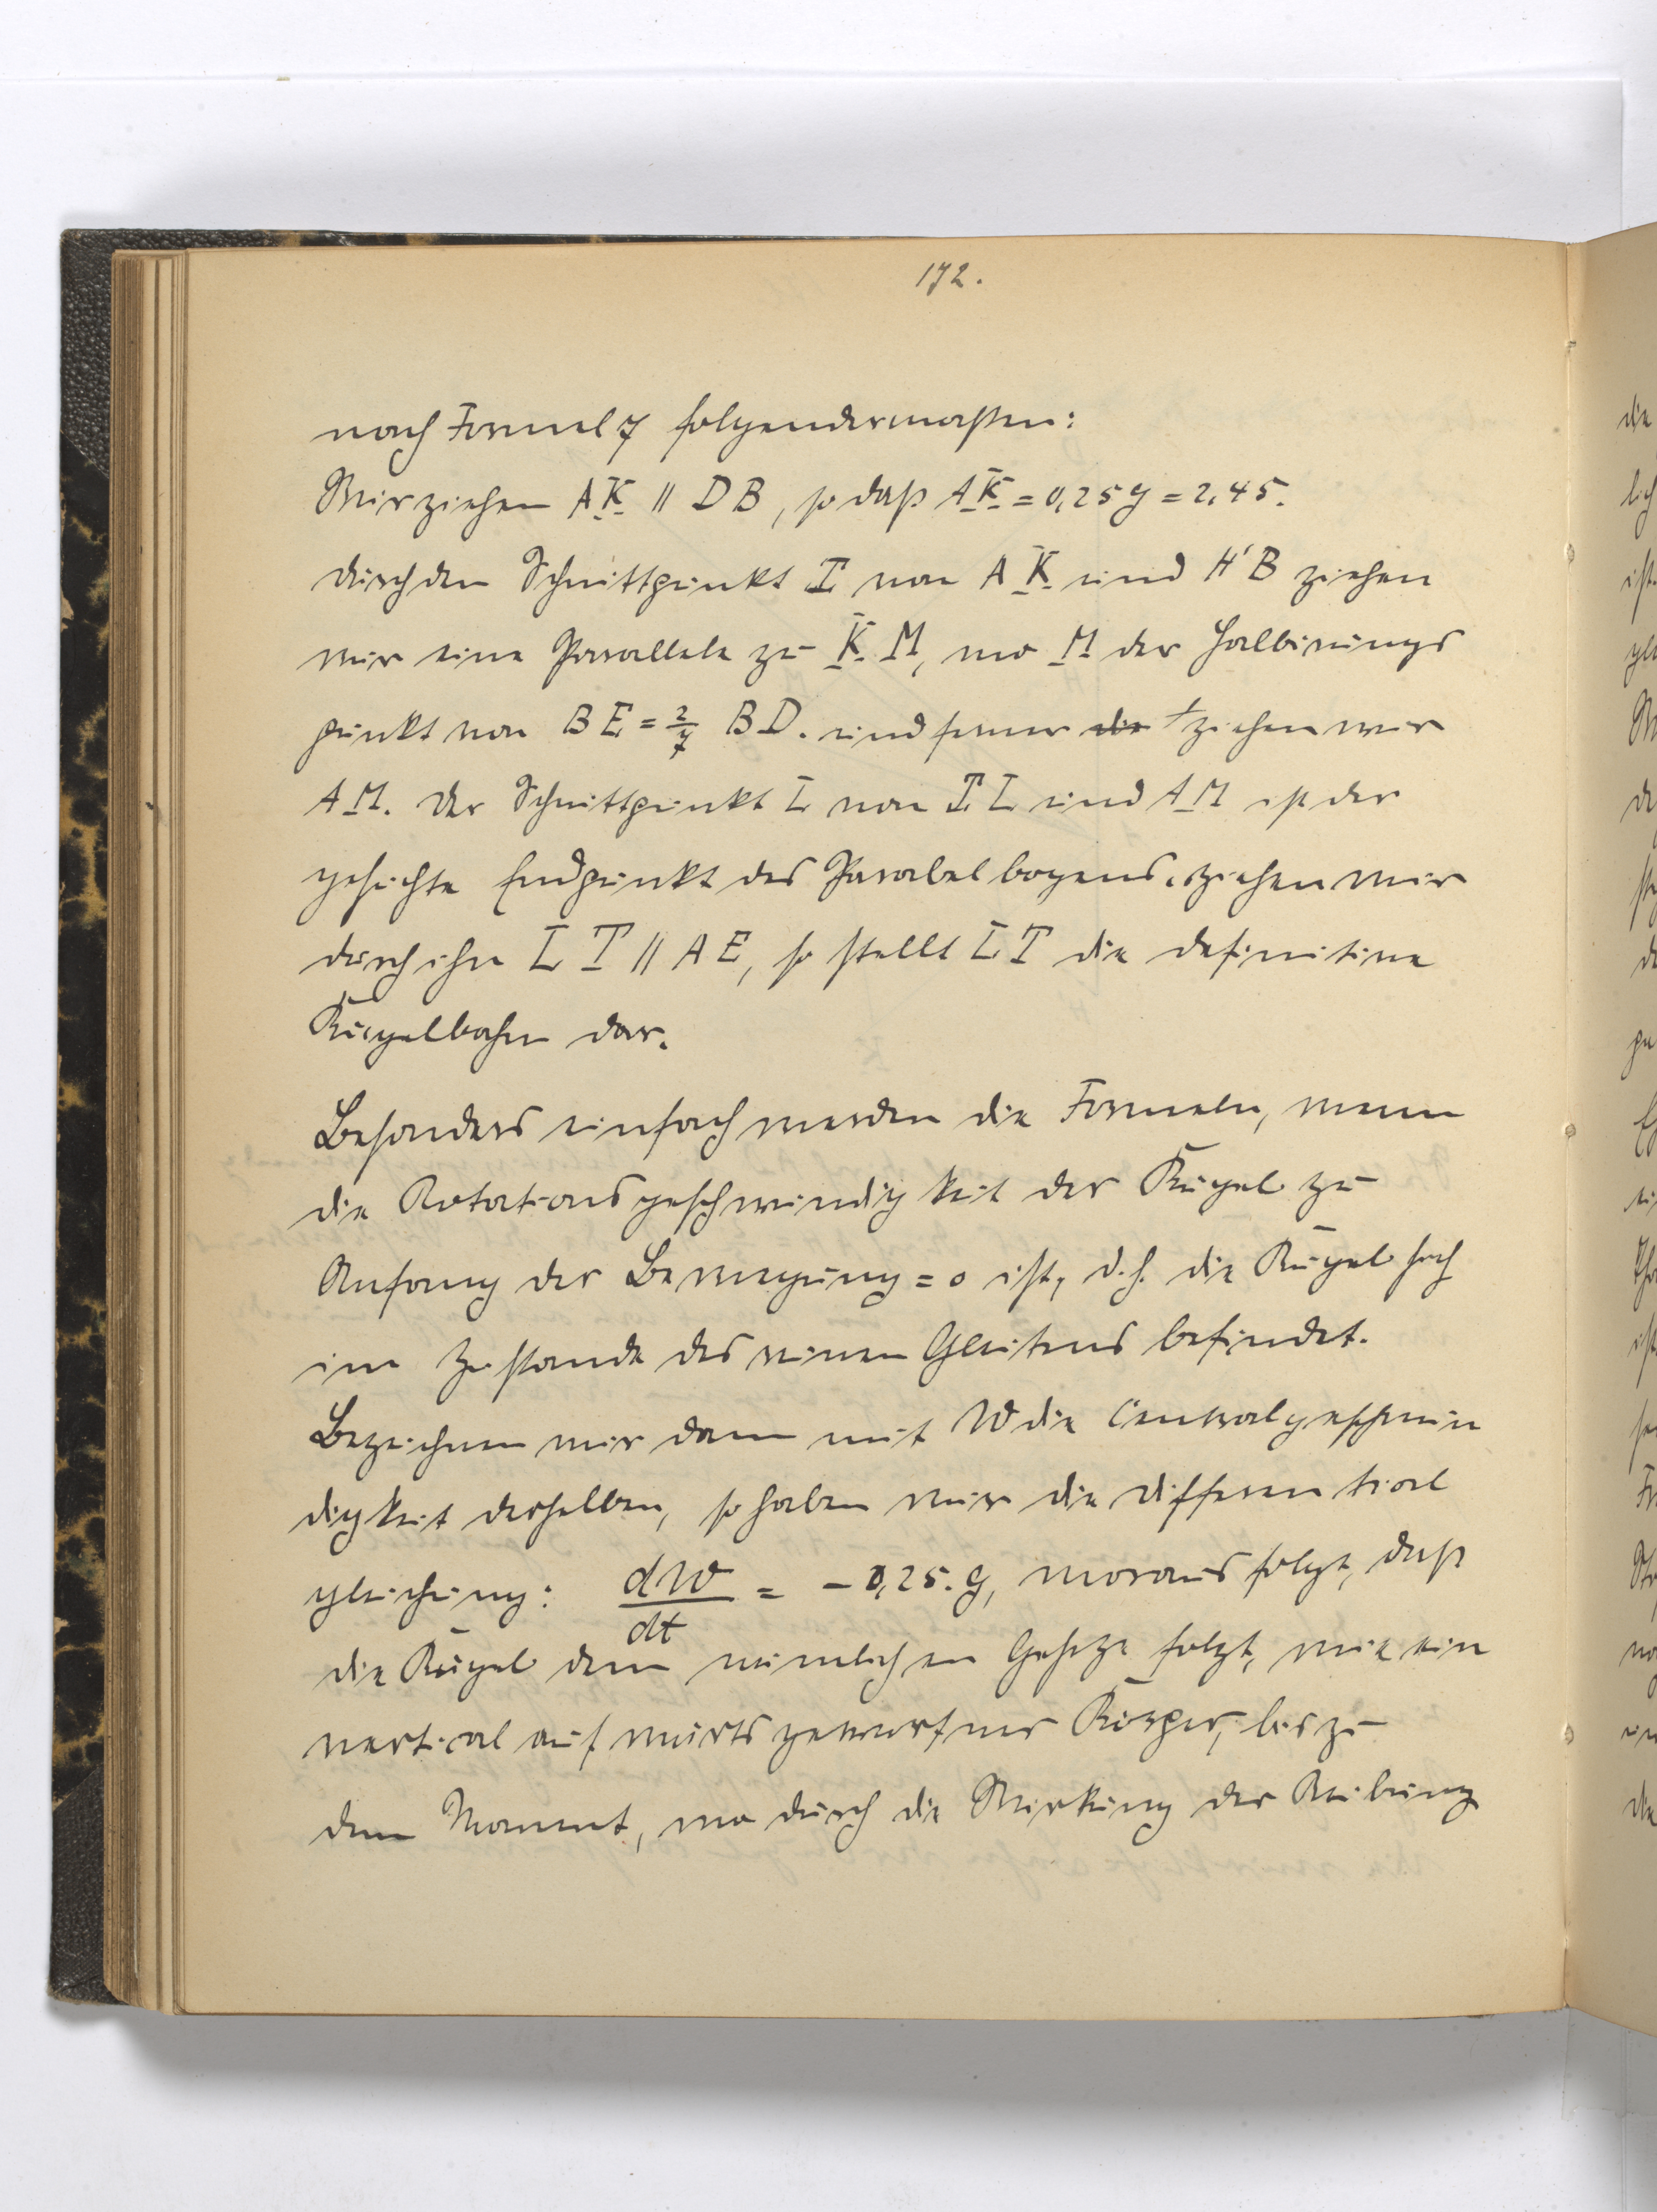 172.
nach Formel 7 folgendermaßen:
Wir ziehen AK || DB, so daß AK = 0,25 g = 2,45.
Durch den Schnittpunkt I von AK und H'B ziehen
wir eine Parallele zu KM, wo M der Halbirungs
punkt von BE = 2/7 BD. und ferner die ziehen wir
AM. Der Schnittpunkt L von IL und AM ist der
gesuchte Endpunkt des Parabelbogens, ziehen wir
durch ihn LT || AE, so stellt LT die definitive
Kugelbahn dar.
Besonders einfach werden die Formeln, wenn
die Rotationsgeschwindigkeit der Kugel zu
Anfang der Bewegung = 0 ist, d.h. die Kugel sich
im Zustande des reinen Gleitens befindet.
Bezeichnen wir dann mit W die Centralgeschwin
digkeit derselben, so haben wir die Differential
gleichung: dW/dt = - 0,25. g, woraus folgt, daß
die Kugel dem nämlichen Gesetze folgt, wie ein
vertical aufwärts geworfner Körper, bis zu
dem Moment, wo durch die Wirkung der Reibung